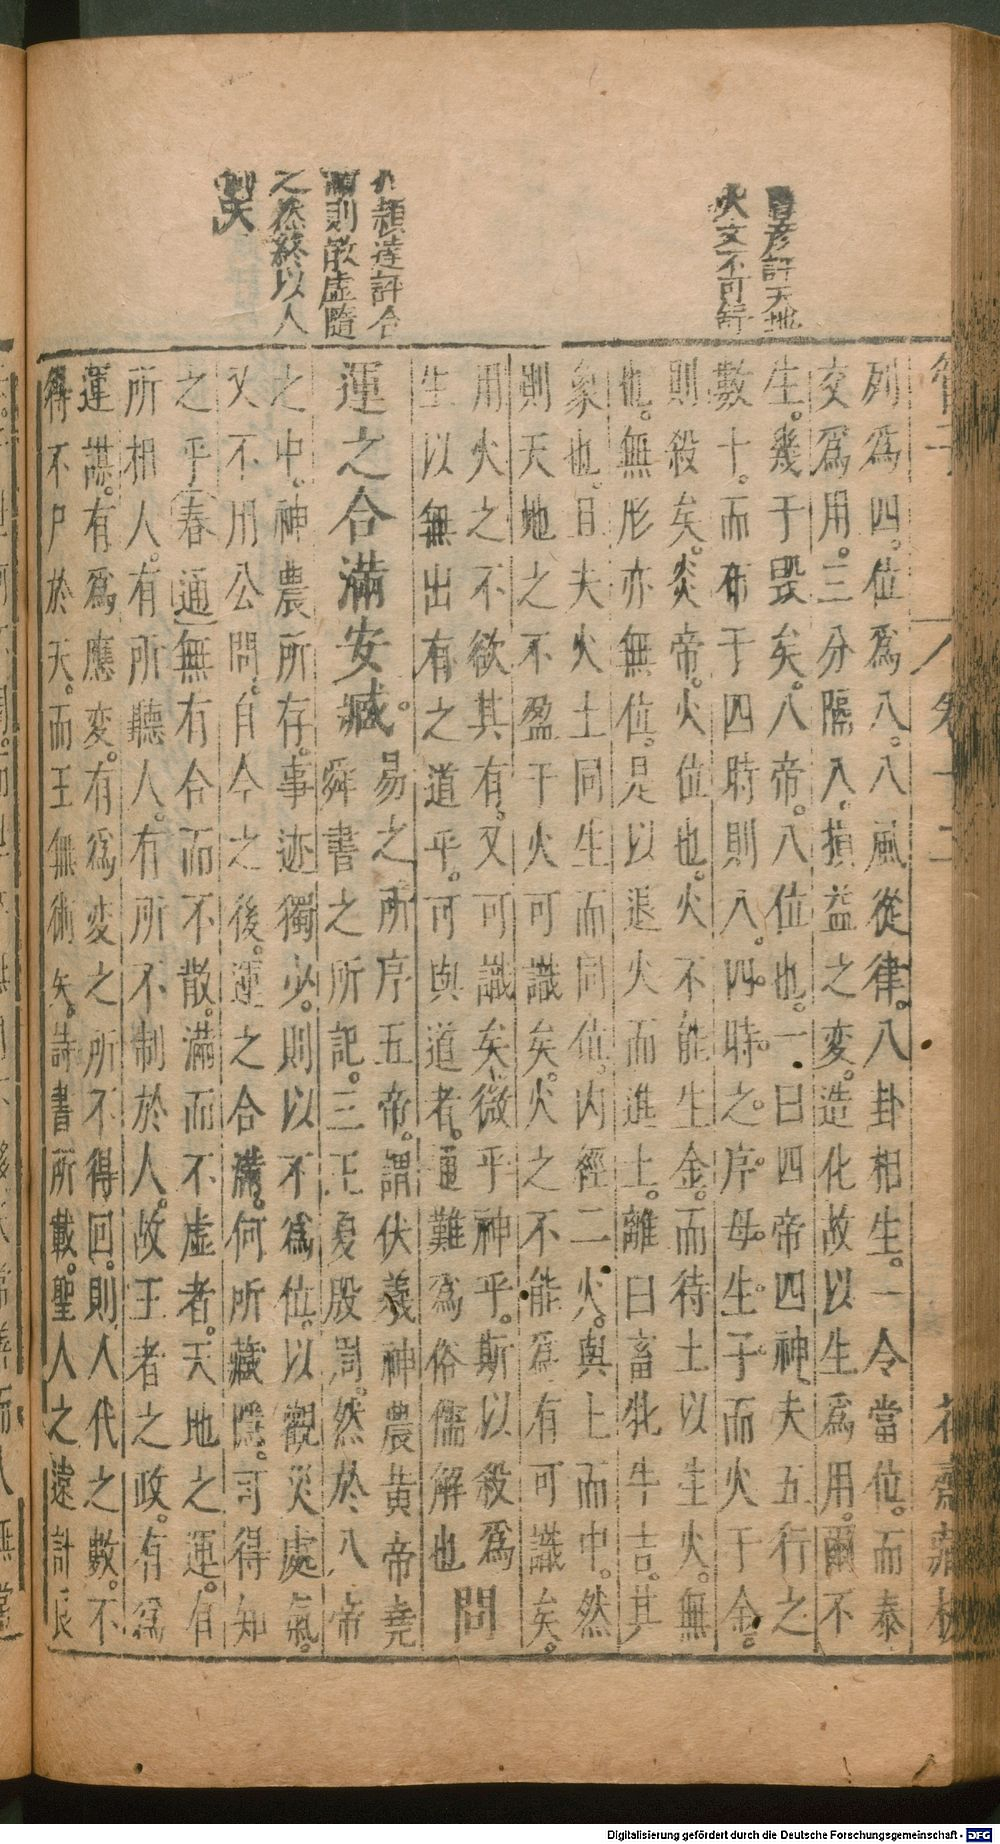 彥評天地
火文不可
頴達評合
則散虛隨
之然終以人
列爲四位爲八八風從律八卦相生一令當位而泰
交爲用三分隔八損益之変造化故以生爲用爾不
生幾于毀矣八帝八位也一曰四帝四神夫五行之
數十而布于四時則八四時之序母生子而火于金
則殺矣炎帝火位也火不能生金而待土以生火無
也無形亦無位是以退火而進土離曰畜牝牛吉其
象也且夫火土同生而同位內經二火與土而中然
則天地之不盈于火可識矣火之不能爲有可識矣
用火之不欲其有又可識矣微乎神乎斯以殺爲
生以無出有之道乎可與道者運難爲俗儒解也 問
運之合滿安臧 易之所序五帝謂伏羲神農黃帝堯
舜書之所記三王夏殷周然於八帝
之中神農所存事迹獨少則以不爲位以觀災處氣
又不用公問自今之後運之合滿何所藏隱可得知
之乎春通無有合而不散滿而不虛者天地之運有
所相人有所聽人有所不制於人故王者之政有爲
運謀有爲應変有爲変之所不得回則人代之數不
得不尸於天而王無術矣詩書所載聖人之遠計長
管子 卷十二 花齋藏板
Digitalisierung gefördert durch die Deutsche Forschungsgemeinschaft - DFG